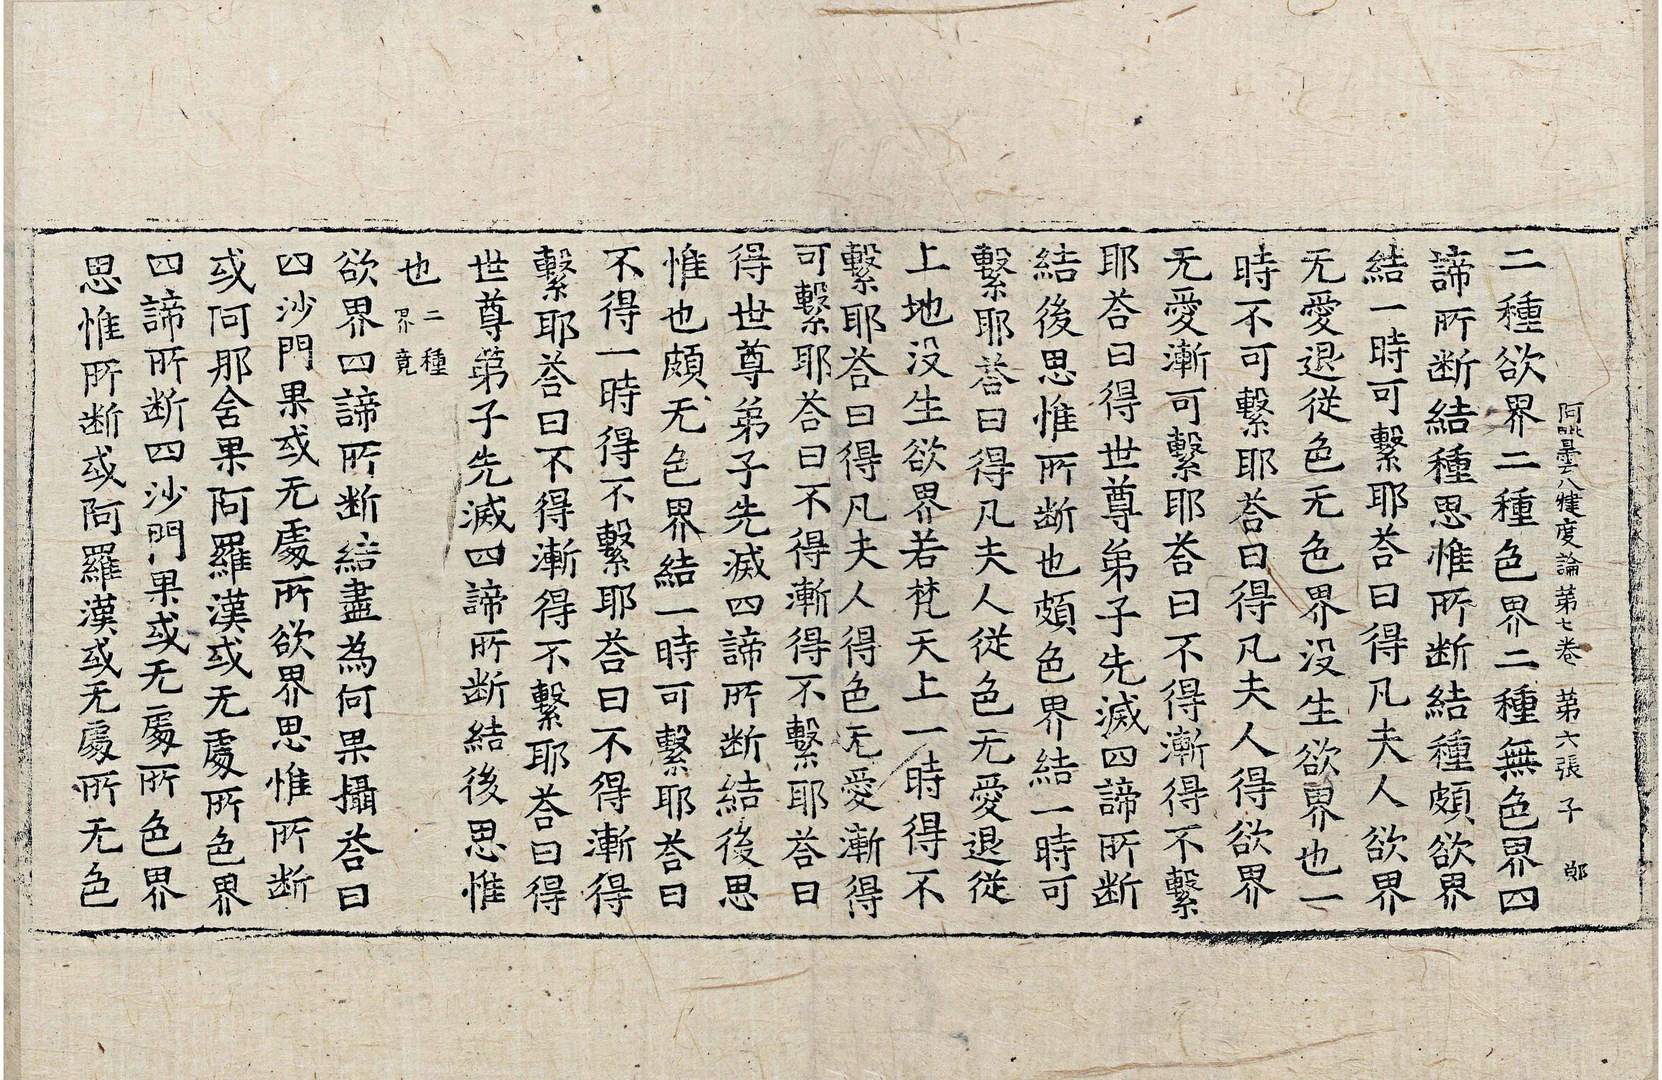 阿毗曇八犍度論第七卷　第六張　子　鄭
二種欲界二種色界二種無色界四
諦所断結種思惟所断結種頗欲界
結一時可繫耶荅曰得凡夫人欲界
无愛退従色无色界没生欲界也一
時不可繫耶荅曰得凡夫人得欲界
无愛漸可繫耶荅曰不得漸得不繫
耶荅曰得世尊弟子先滅四諦所断
結後思惟所断也頗色界結一時可
繫耶荅曰得凡夫人従色无愛退従
上地没生欲界若梵天上一時得不
繫耶荅曰得凡夫人得色无愛漸得
可繫耶荅曰不得漸得不繫耶荅曰
得世尊弟子先滅四諦所断結後思
惟也頗无色界結一時可繫耶荅曰
不得一時得不繫耶荅曰不得漸得
繫耶荅曰不得漸得不繫耶荅曰得
世尊弟子先滅四諦所断結後思惟
也二種界竟
欲界四諦所断結盡為何果攝荅曰
四沙門果或无處所欲界思惟所断
或阿那含果阿羅漢或无處所色界
四諦所断四沙門果或无處所色界
思惟所断或阿羅漢或无處所无色